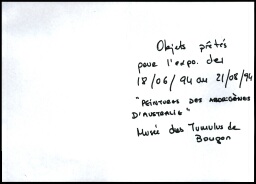 Objets prêtés
pour l'expo. des
18/06/94 au 21/08/94
"PEINTURES DES ABORIGÈNES
D'AUSTRALIE"
Musée des Tumulus de
Bougon